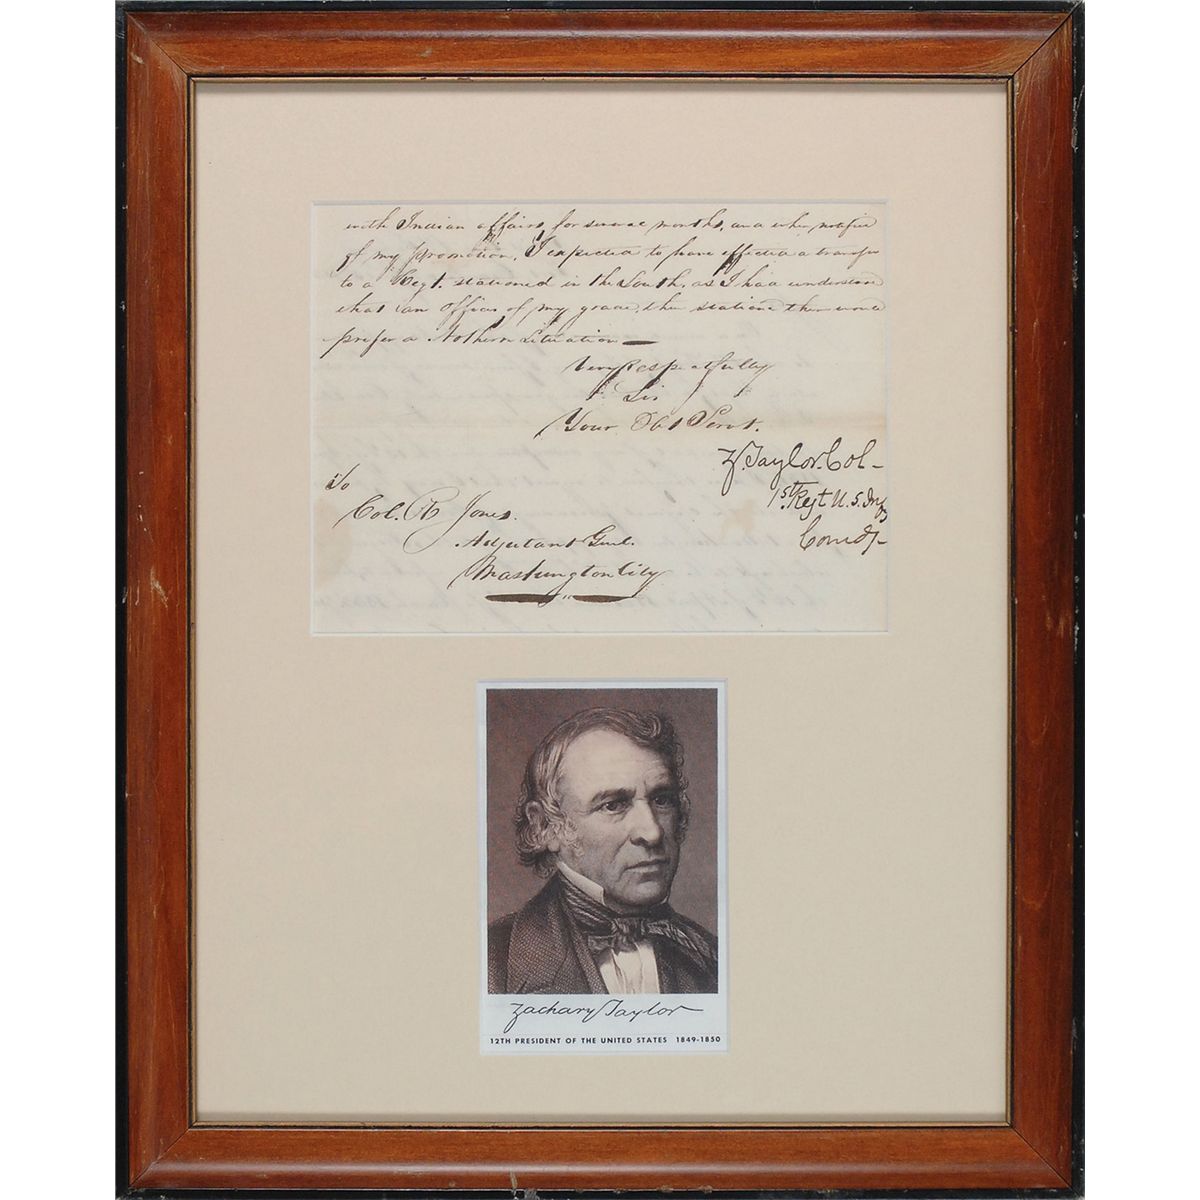 with Indian affairs, for several months, and when notified
of my promotion, I expected to have effected a transfer
to a Regt. stationed in the South, as I had understood
that an officer of my grade, then stationed there would
prefer a Nothern Situation —
Very Respectfully
Sir
Your Obt Servt.
Z. Taylor. Col -
1st Regt U.S. Infy
Comdg -
To
Col. R Jones.
Adjutant Genl.
Washington City
Zachary Taylor
12TH PRESIDENT OF THE UNITED STATES 1849-1850